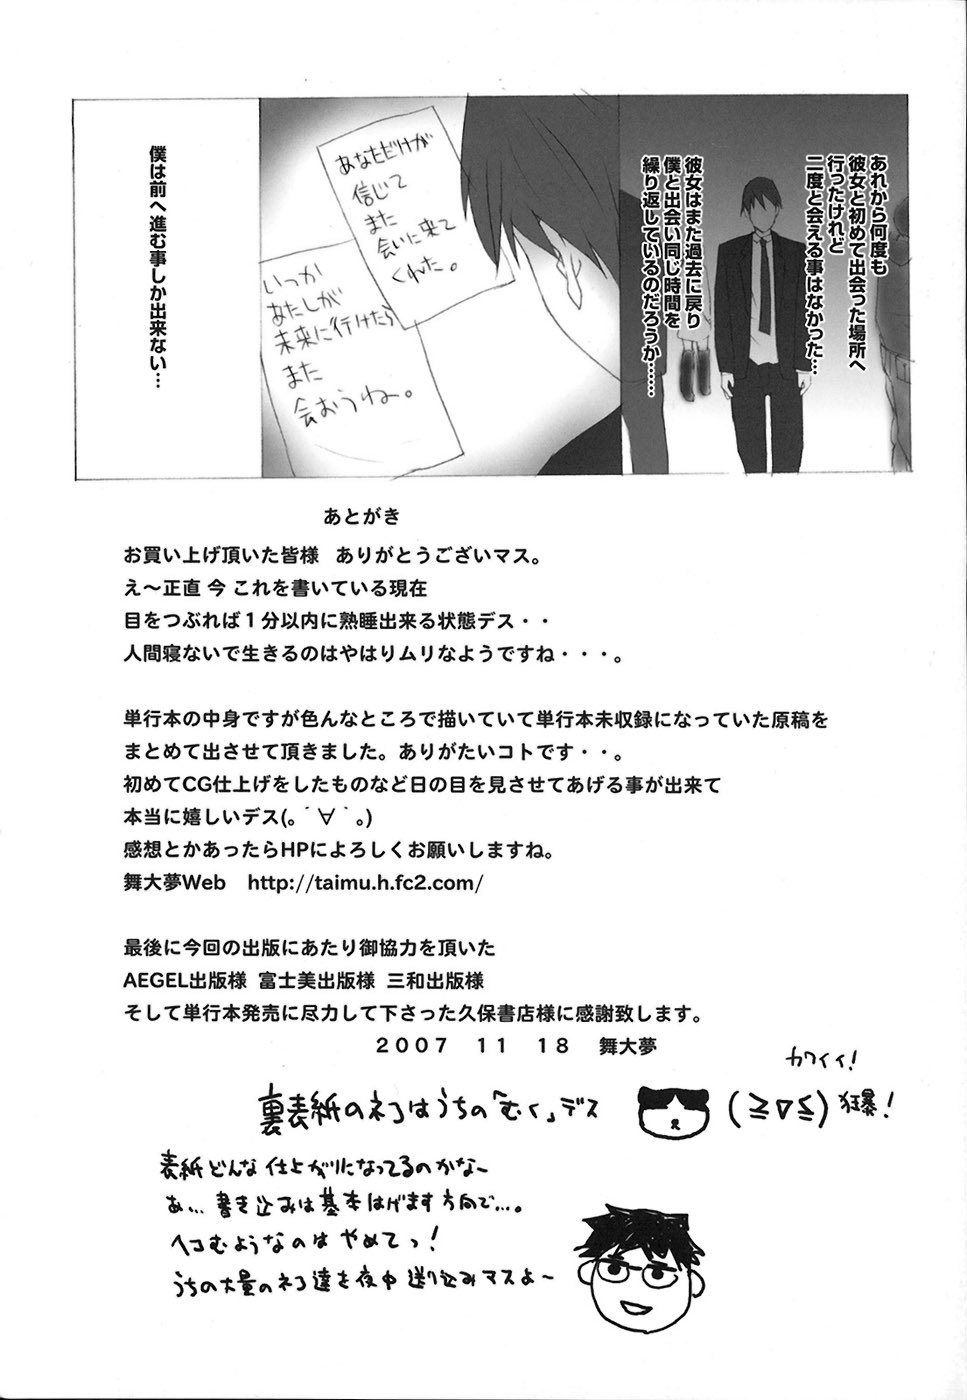 あれから何度も
彼女と初めて出会った場所へ
行ったけれど
二度と会える事はなかった…
彼女はまた過去に戻り
僕と出会い同じ時間を
繰り返しているのだろうか……
あなただけが
信じて
また
会いに来て
くれた。
いつか
あたしが
未来に行けたら
また
会おうね。
僕は前へ進む事しか出来ない…
あとがき
お買い上げ頂いた皆様　ありがとうございマス。
え～正直 今 これを書いている現在
目をつぶれば１分以内に熟睡出来る状態デス・・
人間寝ないで生きるのはやはりムリなようですね・・・。
単行本の中身ですが色んなところで描いていて単行本未収録になっていた原稿を
まとめて出させて頂きました。ありがたいコトです・・。
初めてCG仕上げをしたものなど日の目を見させてあげる事が出来て
本当に嬉しいデス(。´∀｀。)
感想とかあったらHPによろしくお願いしますね。
舞大夢Web　http://taimu.h.fc2.com/
最後に今回の出版にあたり御協力を頂いた
AEGEL出版様 富士美出版様 三和出版様
そして単行本発売に尽力して下さった久保書店様に感謝致します。
２００７　１１　１８　舞大夢
カワイイ!
裏表紙のネコはうちの「むく」デス
(≧∇≦) 狂暴!
表紙どんな仕上がりになってるのかなー
あ… 書き込みは基本はげます方向で…。
ヘコむようなのは やめてっ!
うちの大量のネコ達を夜中 送り込みマスよ～